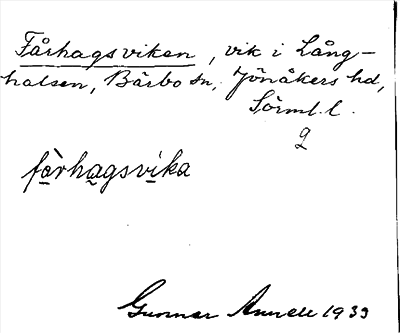 Fårhagsviken, vik i Lång-
halsen, Bärbo sn, Jönåkers hd,
Sörml. l.
2
fårhagsvika
Gunnar Annell 1939